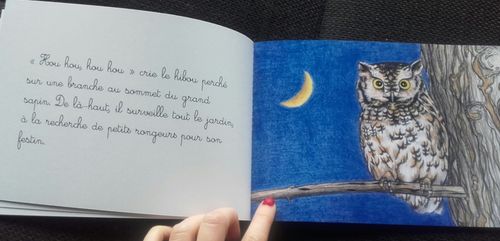 « Hou hou, hou hou » crie le hibou perché
sur une branche au sommet du grand
sapin. De là-haut, il surveille tout le jardin,
à la recherche de petits rongeurs pour son
festin.